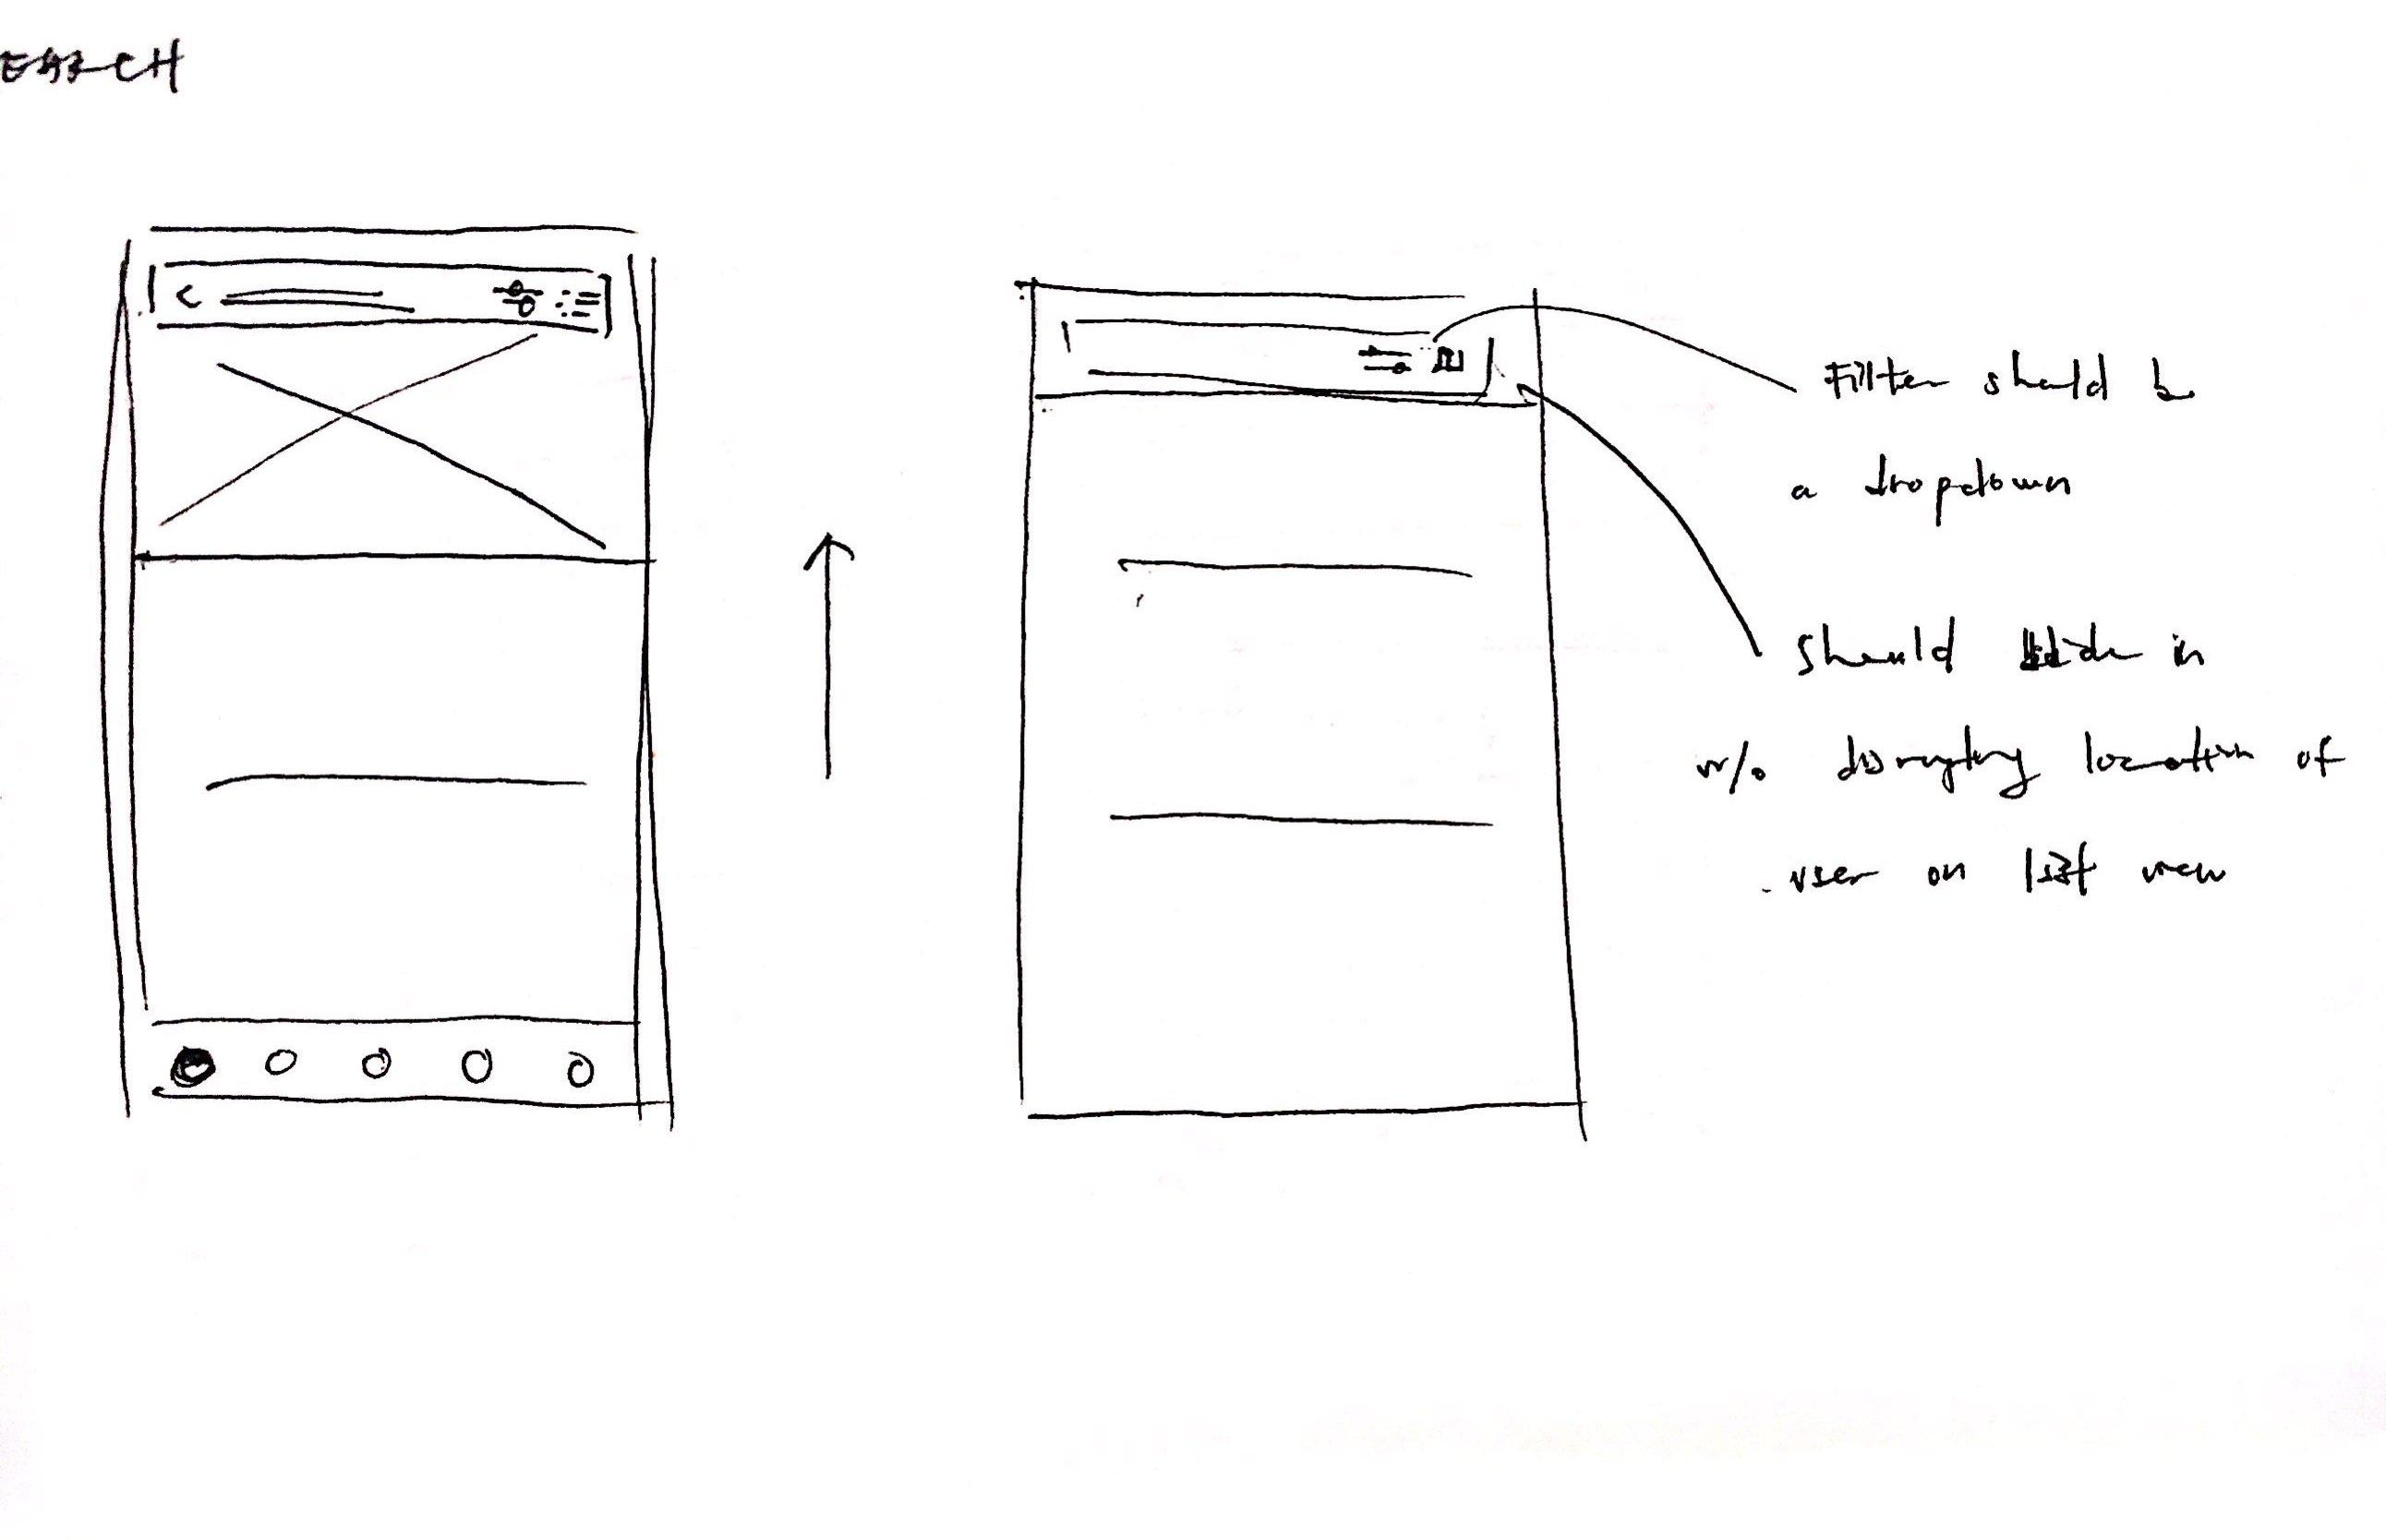 EARCH
Filter should be
a dropdown
Should in
w/o disrupting location of
user on list view